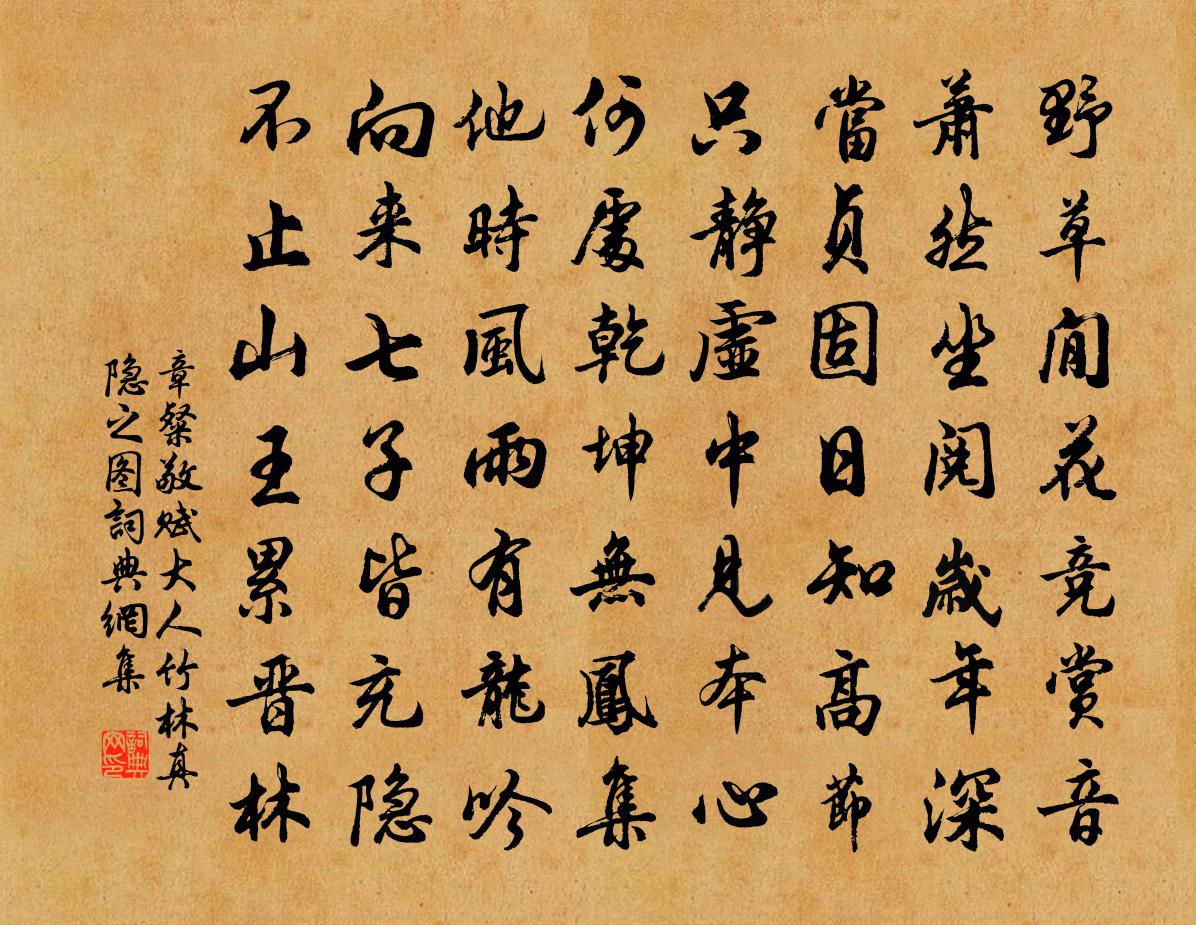 野草閒花竞赏音
萧然坐阅歳年深
當貞固日知高節
只静虚中見本心
何處乾坤無鳳集
他時風雨有龍吟
向来七子皆充隐
不止山王累晋林
章粲敬赋大人竹林真
隐之图詞典網集
詞典
网印